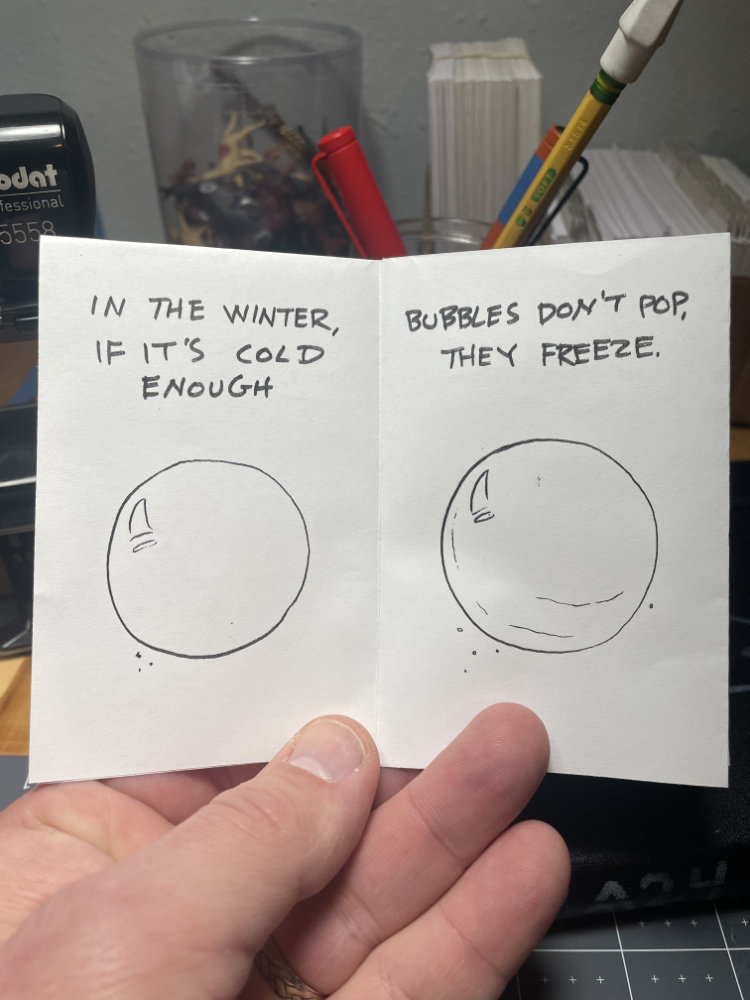 odat
fessional
5558
IN THE WINTER,
IF IT'S COLD
ENOUGH
BUBBLES DON'T POP,
THEY FREEZE.